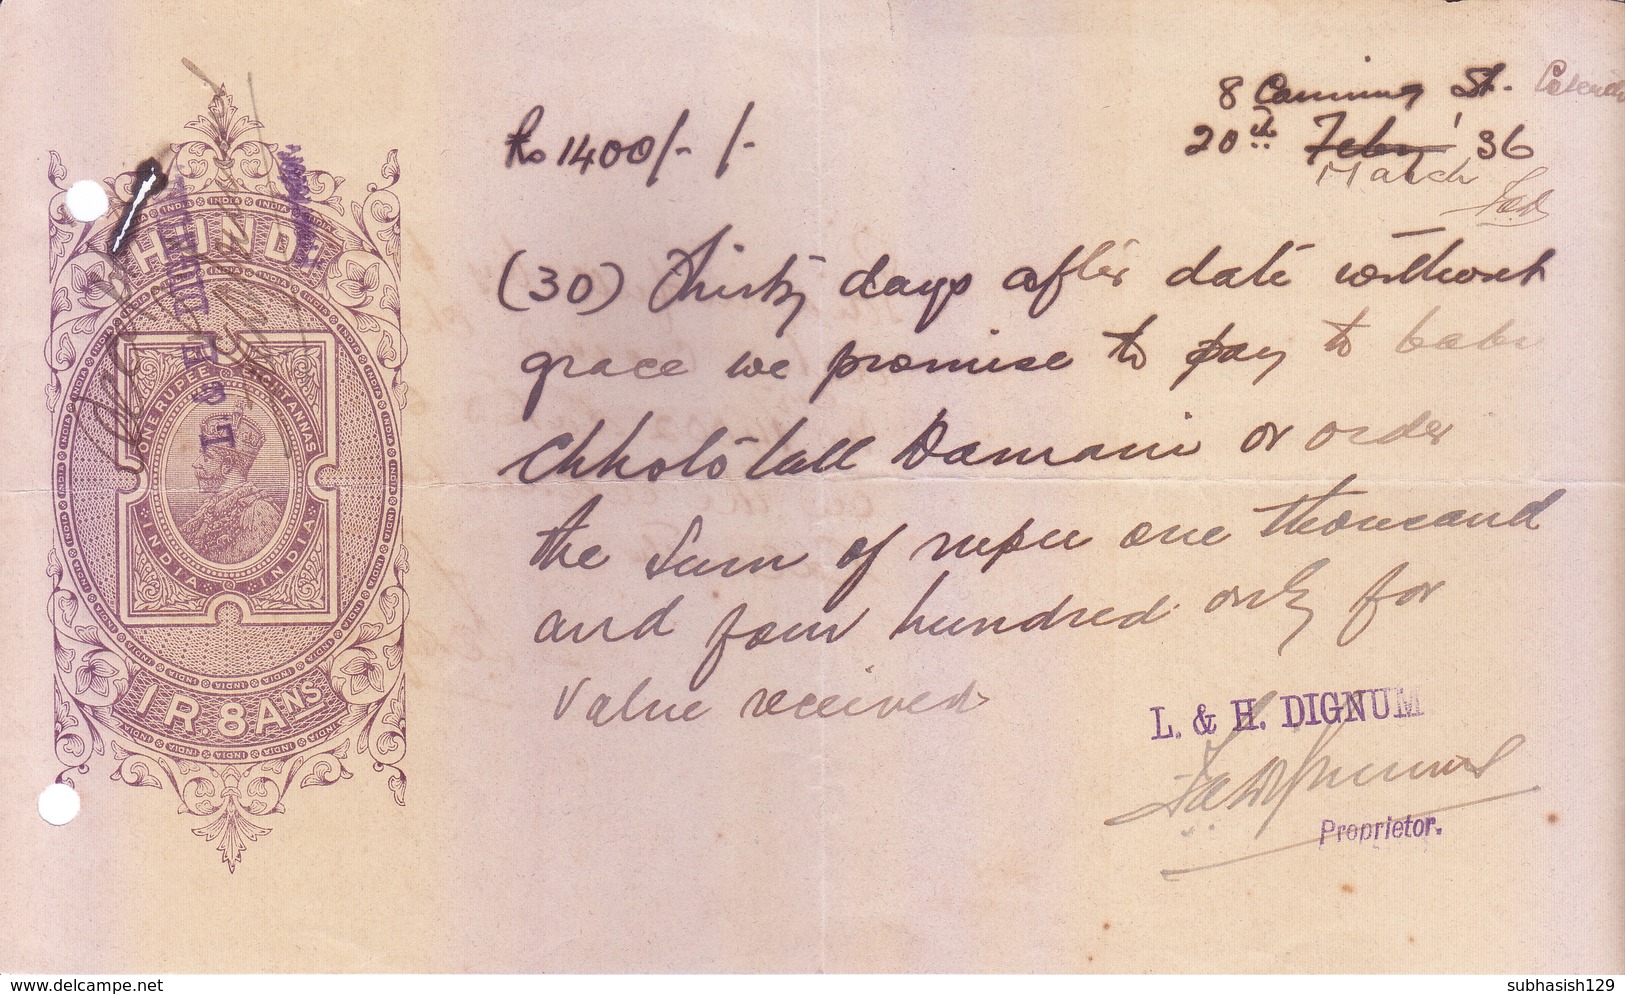 8 Canning St. Calcutta
Rs 1400/- /-
20th Feby' 36
March
(30) Thirty days after date without
grace we promise to pay to babu
Chhotolall Damani or order
the sum of rupee one thousand
and four hundred only for
value received
L. & H. DIGNUM
Proprietor.
HUNDI
ONE RUPEE EIGHT ANNAS
INDIA INDIA
1 R. 8 ANS
L. & H. DIGNUM
subhasish129